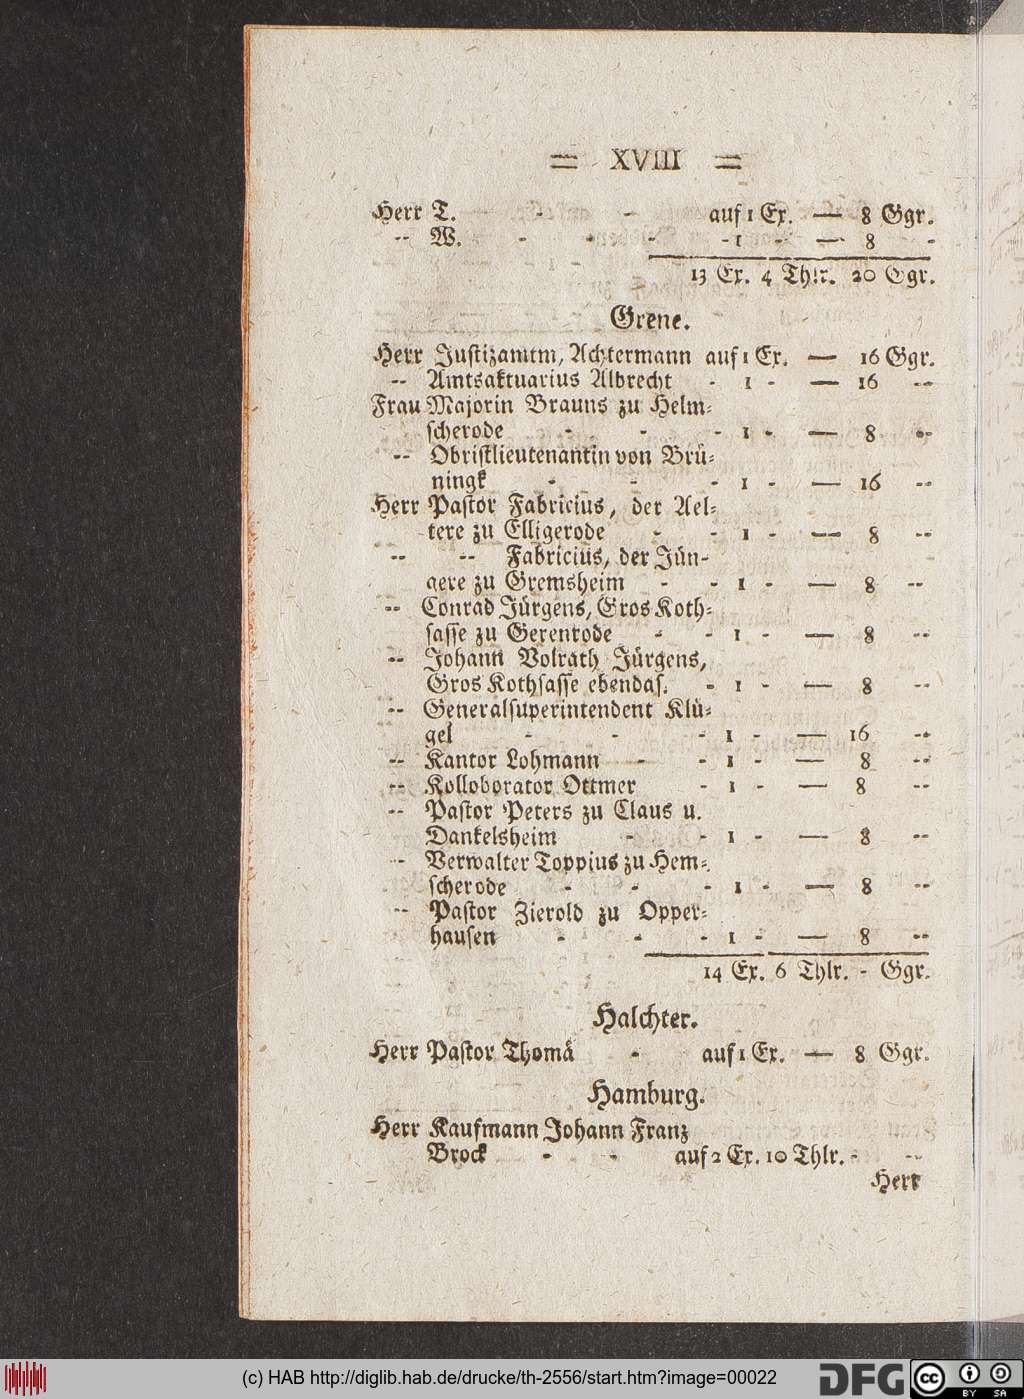 = XVIII =
Herr T. - - auf 1 Ex. — 8 Ggr.
-- W. - - - - 1 - — 8 -
13 Ex. 4 Thlr. 20 Ggr.
Grene.
Herr Justizamtm, Achtermann auf 1 Ex. — 16 Ggr.
-- Amtsaktuarius Albrecht - 1 - — 16 --
Frau Majorin Brauns zu Helm-
scherode - - - 1 - — 8 --
-- Obristlieutenantin von Brü-
ningk - - - 1 - — 16 --
Herr Pastor Fabricius, der Ael-
tere zu Elligerode - - 1 - — 8 --
-- -- Fabricius, der Jün-
gere zu Gremsheim - - 1 - — 8 --
-- Conrad Jürgens, Gros Koth-
sasse zu Gerenrode - - 1 - — 8 --
-- Johann Volrath Jürgens,
Gros Kothsasse ebendas. - 1 - — 8 --
-- Generalsuperintendent Klü-
gel - - - 1 - — 16 --
-- Kantor Lohmann - - 1 - — 8 --
-- Kolloborator Ottmer - 1 - — 8 --
-- Pastor Peters zu Claus u.
Dankelsheim - - 1 - — 8 --
-- Verwalter Toppius zu Hem-
scherode - - - 1 - — 8 --
-- Pastor Zierold zu Opper-
hausen - - - 1 - — 8 --
14 Ex. 6 Thlr. - Ggr.
Halchter.
Herr Pastor Thomä - auf 1 Ex. — 8 Ggr.
Hamburg.
Herr Kaufmann Johann Franz
Brock - - auf 2 Ex. 10 Thlr. - --
Herr
(c) HAB http://diglib.hab.de/drucke/th-2556/start.htm?image=00022
DFG
cc BY SA